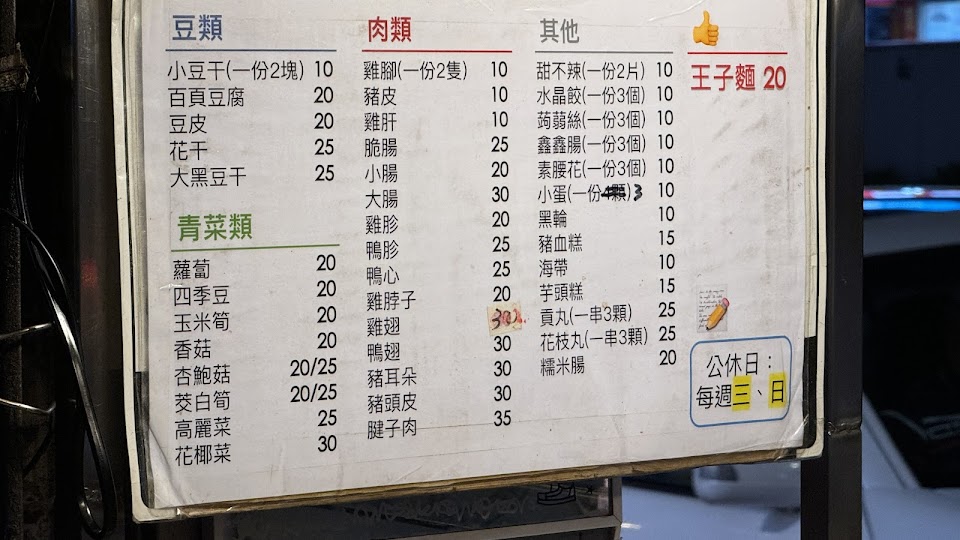 豆類
小豆干(一份2塊) 10
百頁豆腐 20
豆皮 20
花干 25
大黑豆干 25
青菜類
蘿蔔 20
四季豆 20
玉米筍 20
香菇 20
杏鮑菇 20/25
茭白筍 20/25
高麗菜 25
花椰菜 30
肉類
雞腳(一份2隻) 10
豬皮 10
雞肝 10
脆腸 25
小腸 20
大腸 30
雞胗 20
鴨胗 25
鴨心 25
雞脖子 20
雞翅 30
鴨翅 30
豬耳朵 30
豬頭皮 30
腱子肉 35
其他
甜不辣(一份2片) 10
水晶餃(一份3個) 10
蒟蒻絲(一份3個) 10
鑫鑫腸(一份3個) 10
素腰花(一份3個) 10
小蛋(一份4顆)3 10
黑輪 10
豬血糕 15
海帶 10
芋頭糕 15
貢丸(一串3顆) 25
花枝丸(一串3顆) 25
糯米腸 20
王子麵 20
公休日：
每週三、日